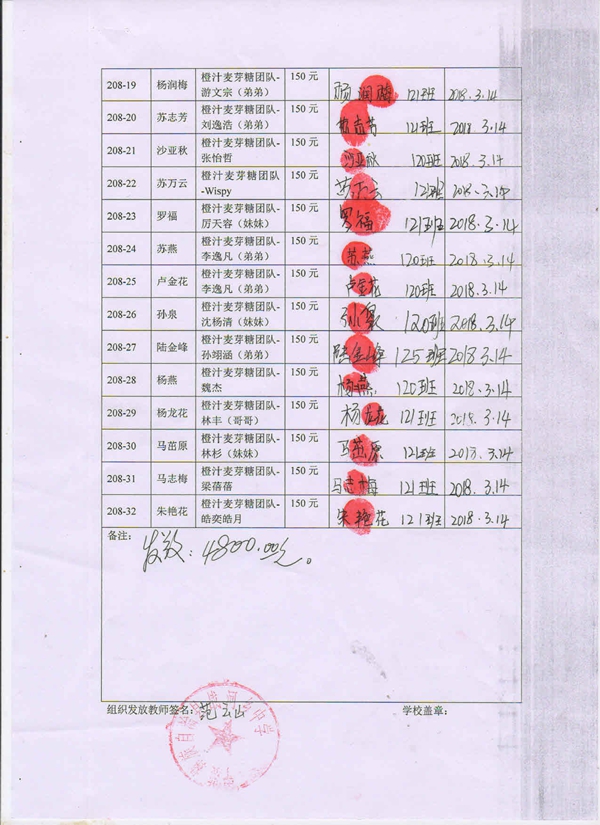 208-19 杨润梅 橙汁麦芽糖团队- 150 元 杨润梅 121班 2018.3.14
游文宗（弟弟）
208-20 苏志芳 橙汁麦芽糖团队- 150 元 苏志芳 121班 2018.3.14
刘逸浩（弟弟）
208-21 沙亚秋 橙汁麦芽糖团队- 150 元 沙亚秋 120班 2018.3.14
张怡哲
208-22 苏万云 橙汁麦芽糖团队 150 元 苏万云 121班 2018.3.14
-Wispy
208-23 罗福 橙汁麦芽糖团队- 150 元 罗福 121班 2018.3.14
厉天容（妹妹）
208-24 苏燕 橙汁麦芽糖团队- 150 元 苏燕 120班 2018.3.14
李逸凡（弟弟）
208-25 卢金花 橙汁麦芽糖团队- 150 元 卢金花 120班 2018.3.14
李逸凡（弟弟）
208-26 孙泉 橙汁麦芽糖团队- 150 元 孙泉 120班 2018.3.14
沈杨清（妹妹）
208-27 陆金峰 橙汁麦芽糖团队- 150 元 陆金峰 125班 2018.3.14
孙翊涵（弟弟）
208-28 杨燕 橙汁麦芽糖团队- 150 元 杨燕 120班 2018.3.14
魏杰
208-29 杨龙花 橙汁麦芽糖团队- 150 元 杨龙花 121班 2018.3.14
林丰（哥哥）
208-30 马茁原 橙汁麦芽糖团队- 150 元 马茁原 121班 2018.3.14
林杉（妹妹）
208-31 马志梅 橙汁麦芽糖团队- 150 元 马志梅 121班 2018.3.14
梁蓓蓓
208-32 朱艳花 橙汁麦芽糖团队- 150 元 朱艳花 121班 2018.3.14
皓奕皓月
备注：
发放：4800.00元。
组织发放教师签名：范云山 学校盖章：